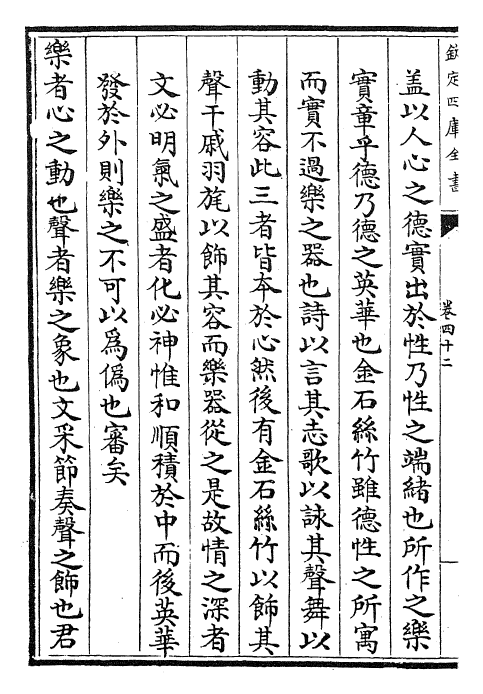 欽定四庫全書
卷四十二
蓋以人心之德實出於性乃性之端緒也所作之樂
實章乎德乃德之英華也金石絲竹雖德性之所寓
而實不過樂之器也詩以言其志歌以詠其聲舞以
動其容此三者皆本於心然後有金石絲竹以飾其
聲干戚羽旄以飾其容而樂器從之是故情之深者
文必明氣之盛者化必神惟和順積於中而後英華
發於外則樂之不可以為偽也審矣
樂者心之動也聲者樂之象也文采節奏聲之飾也君